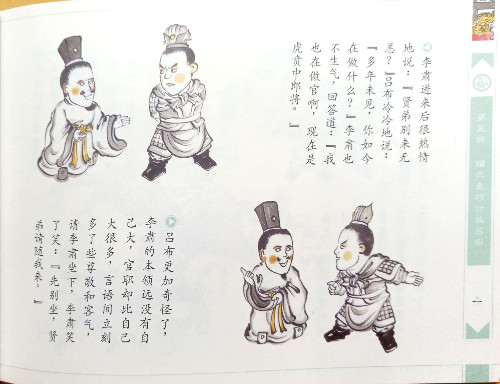 李肃进来后很热情
地说：『贤弟别来无
恙？』吕布冷冷地说：
『多年未见，你如今
在做什么？』李肃也
不生气，回答道：『我
也在做官啊，现在是
虎贲中郎将。』
吕布更加奇怪了，
李肃的本领远没有自
己大，官职却比自己
大很多，言语间立刻
多了些尊敬和客气，
请李肃坐下。李肃笑
了笑：『先别坐，贤
弟请随我来。』
一